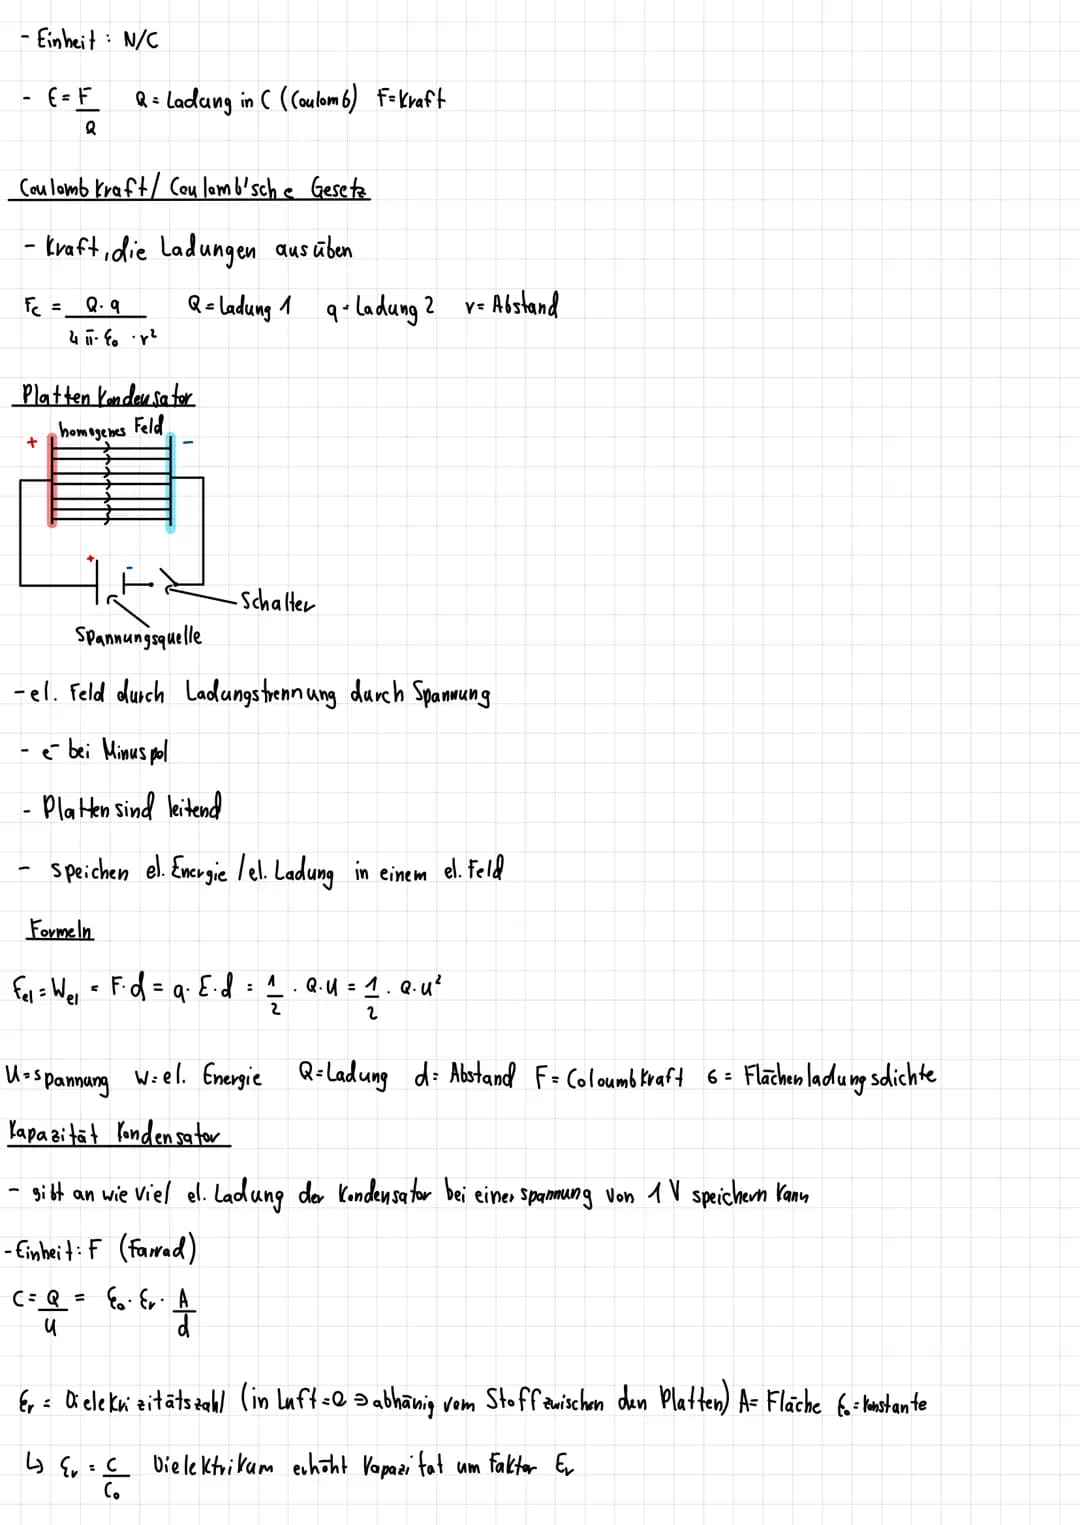 - Einheit : N/C
- E = F/Q   Q = Ladung in C (Coulomb)   F = Kraft
Coulomb kraft / Coulomb'sche Gesetz
- Kraft, die Ladungen ausüben
Fc = Q · q / 4 π · ε₀ · r²   Q = Ladung 1   q = Ladung 2   r = Abstand
Plattenkondensator
homogenes Feld
+ -
+ -
Schalter
Spannungsquelle
- el. Feld durch Ladungstrennung durch Spannung
- e⁻ bei Minuspol
- Platten sind leitend
- speichen el. Energie / el. Ladung in einem el. Feld
Formeln
Eel = Wel = F · d = q · E · d = 1/2 · Q · U = 1/2 · Q · U²
U = Spannung   W = el. Energie   Q = Ladung   d = Abstand   F = Coloumbkraft   6 = Flächenladungsdichte
Kapazität Kondensator
- gibt an wie viel el. Ladung der Kondensator bei einer spannung von 1 V speichern kann
- Einheit : F (Farrad)
C = Q/U = ε₀ · εr · A/d
εr = Dielektrizitätszahl (in Luft = 0 → abhänig vom Stoff zwischen den Platten)   A = Fläche   ε₀ = Konstante
↳ εr = C/C₀   Dielektrikum erhöht Kapazitat um Faktor εr